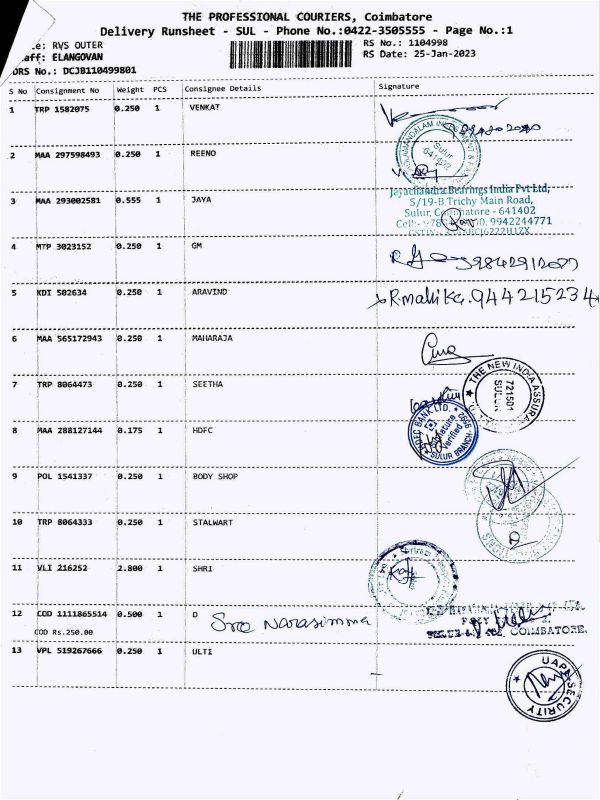 THE PROFESSIONAL COURIERS, Coimbatore
Delivery Runsheet - SUL - Phone No.:0422-3505555 - Page No.:1
RVS OUTER
RS No.: 1104998
ELANGOVAN
RS Date: 25-Jan-2023
DRS No.: DCJB110499801
S No Consignment No Weight PCS Consignee Details Signature
1 TRP 1582075 0.250 1 VENKAT
2 MAA 297598493 0.250 1 REENO
Sulur 641402
3 MAA 293002581 0.555 1 JAYA
Jayachandra Bearings India Pvt Ltd,
5/19-B Trichy Main Road,
Sulur, Coimbatore - 641402
9942244771
4 MTP 3023152 0.250 1 GM
5 KDI 502634 0.250 1 ARAVIND
R.mallika. 944215234
6 MAA 565172943 0.250 1 MAHARAJA
7 TRP 8064473 0.250 1 SEETHA
THE NEW INDIA ASSURA
721501
SULUR
8 MAA 288127144 0.175 1 HDFC
HDFC BANK LTD. * 0990
Signature Verified
SULUR BRANCH
9 POL 1541337 0.250 1 BODY SHOP
10 TRP 8064333 0.250 1 STALWART
11 VLI 216252 2.800 1 SHRI
12 COD 1111865514 0.500 1 D
Sree Narasimma
COD Rs.250.00
COIMBATORE.
13 VPL 519267666 0.250 1 ULTI
UAPL SECURITY